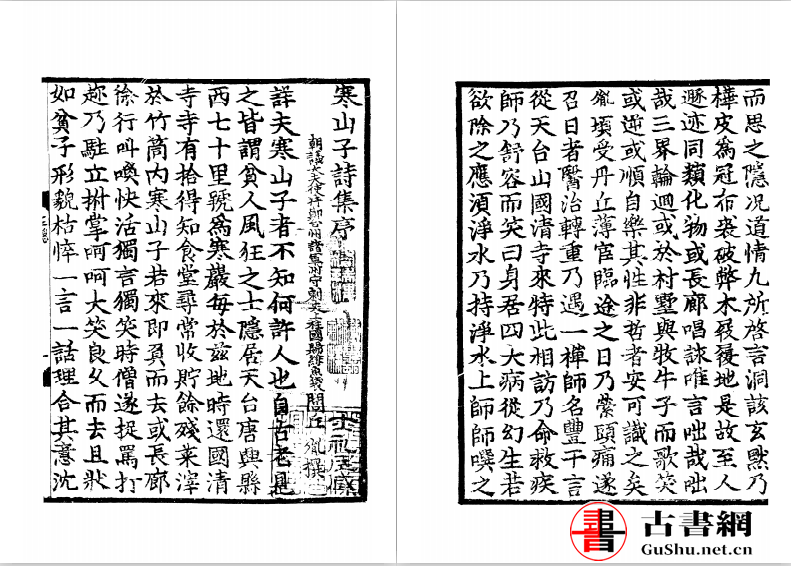 寒山子詩集序
朝議大夫使持節台州諸軍事守刺史上柱國賜緋魚袋閭丘胤撰
詳夫寒山子者不知何許人也自古老見
之皆謂貧人風狂之士隱居天台唐興縣
西七十里號爲寒巖每於兹地時還國清
寺寺有拾得知食堂尋常收貯餘殘菜滓
於竹筩内寒山子若來即負而去或長廊
徐行叫喚快活獨言獨笑時僧遂捉罵打
趂乃駐立拊掌呵呵大笑良久而去且狀
如貧子形貌枯悴一言一話理合其意沈
而思之隱况道情凡所啓言洞該玄默乃
樺皮爲冠布裘破弊木屐履地是故至人
遯迹同類化物或長廊唱詠唯言咄哉咄
哉三界輪迴或於村墅與牧牛子而歌笑
或逆或順自樂其性非哲者安可識之矣
胤頃受丹丘薄宦臨途之日乃縈頭痛遂
召日者醫治轉重乃遇一禪師名豐干言
從天台山國清寺來特此相訪乃命救疾
師乃舒容而笑曰身居四大病從幻生若
欲除之應須淨水乃持淨水上師師噀之
古書網
GuShu.net.cn